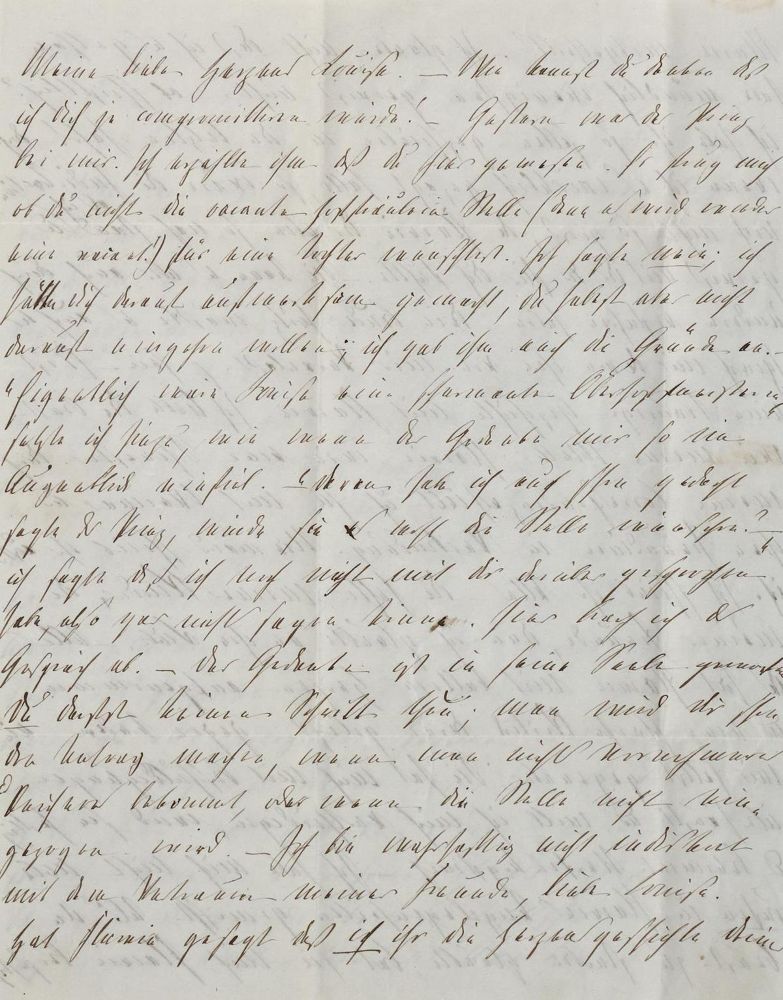 Meine liebe Herzens Louise. – Wie kannst du denken daß
ich dich je compromittiren würde! – Gestern war der Prinz
bei mir. Ich erzählte ihm daß du hier gewesen. Er frug mich
ob du nicht die vacante Hoffräulein Stelle (denn es wird wieder
eine vacant!) für eine Tochter wünschtest. Ich sagte nein; ich
hätte dich darauf aufmerksam gemacht, du habest aber nicht
darauf eingehen wollen; ich gab ihm auch die Gründe an. –
"Eigentlich wäre Louise eine scharmante Oberhofmeisterin"
setzte ich hinzu, wie wenn der Gedanke mir so im
Augenblick einfiel. "daran hab ich auch schon gedacht
sagte der Prinz, würde sie es wohl die Stelle wünschen?" –
ich sagte daß ich noch nicht mit dir darüber gesprochen
habe also gar nichts sagen könne. Hier brach ich das
Gespräch ab. – Der Gedanke ist in seine Seele
du darfst keinen Schritt thun; man wird dir schon
den Antrag machen, wenn man nicht vornehmere
bekommt, oder wenn die Stelle nicht ein-
gezogen wird. – Ich bin wahrhaftig nicht indiskret
mit dem Vertrauen meiner Freunde, liebe Louise.
Hat gesagt daß ich ihr die Herzensgeschichte deiner